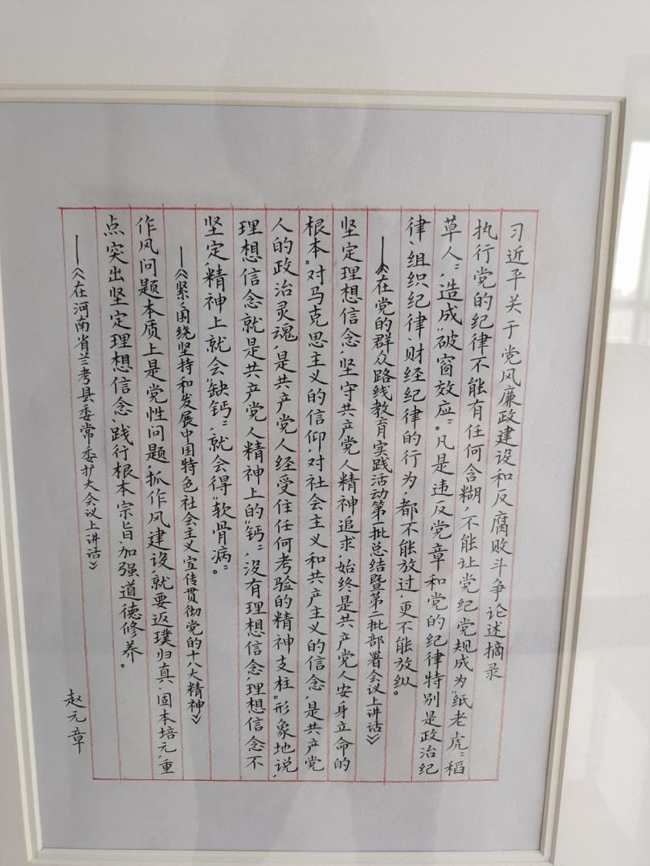 习近平关于党风廉政建设和反腐败斗争论述摘录
执行党的纪律不能有任何含糊,不能让党纪党规成为“纸老虎”“稻
草人”,造成“破窗效应”。凡是违反党章和党的纪律特别是政治纪
律、组织纪律、财经纪律的行为,都不能放过,更不能放纵。
——《在党的群众路线教育实践活动第一批总结暨第二批部署会议上讲话》
坚定理想信念,坚守共产党人精神追求,始终是共产党人安身立命的
根本。对马克思主义的信仰,对社会主义和共产主义的信念,是共产党
人的政治灵魂,是共产党人经受住任何考验的精神支柱。形象地说,
理想信念就是共产党人精神上的“钙”,没有理想信念,理想信念不
坚定,精神上就会“缺钙”,就会得“软骨病”。
——《紧紧围绕坚持和发展中国特色社会主义 宣传贯彻党的十八大精神》
作风问题本质上是党性问题,抓作风建设,就要返璞归真、固本培元,重
点突出坚定理想信念、践行根本宗旨、加强道德修养。
——《在河南省兰考县委常委扩大会议上讲话》
赵元章